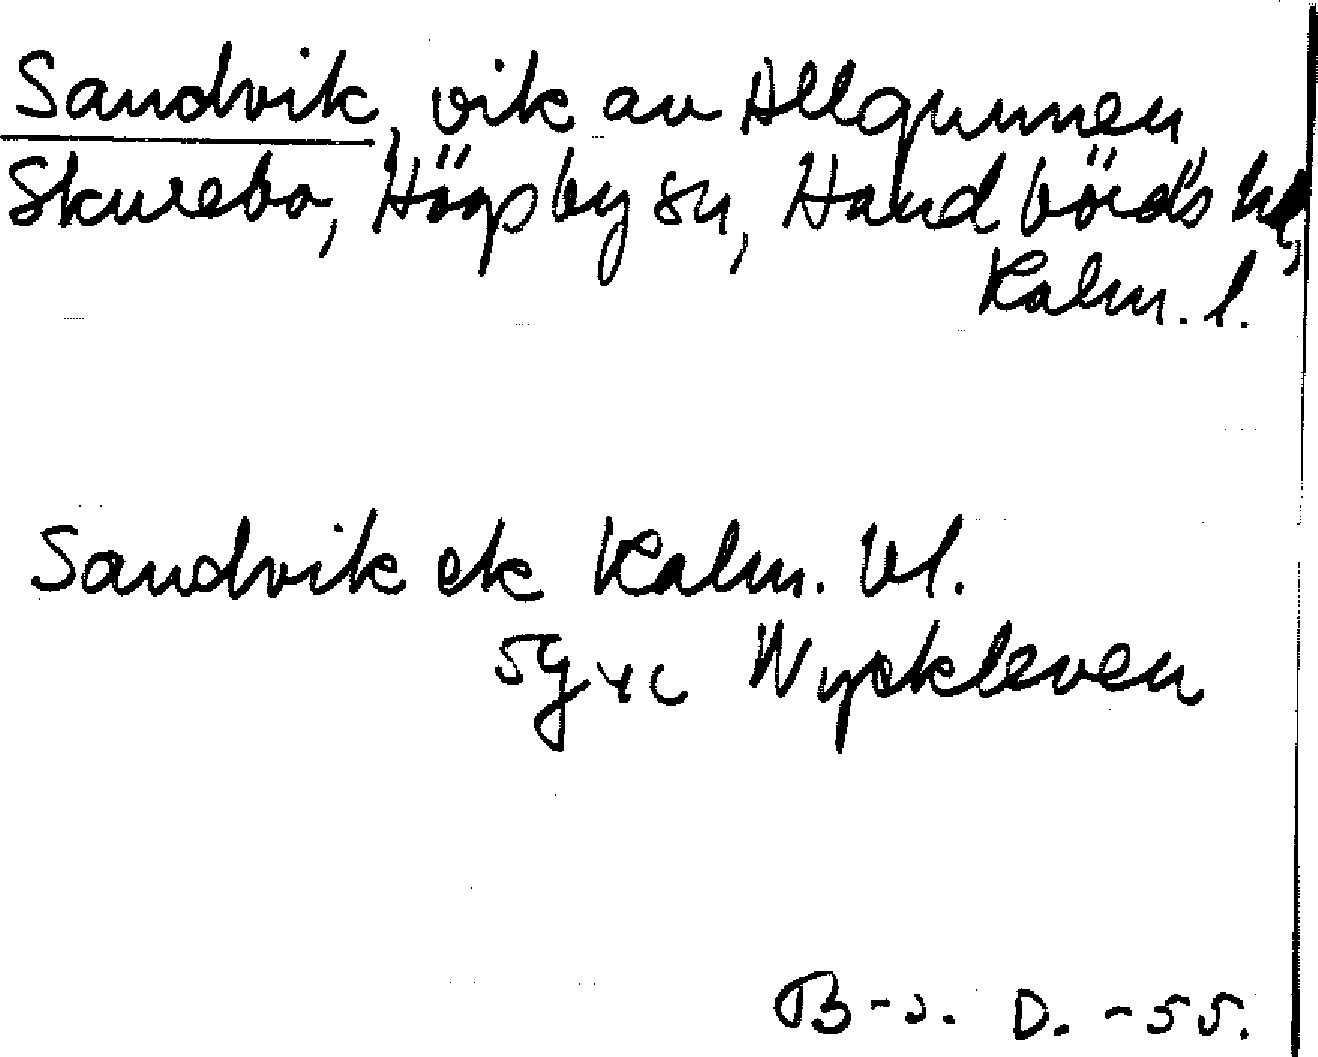 Sandvik, vik av Allgunnen
Skurebo, Högsby sn, Handbörds hd,
Kalm. l.
Sandvik ek Kalm. bl.
5g 4c Nyckleven
B-s. D. -55.